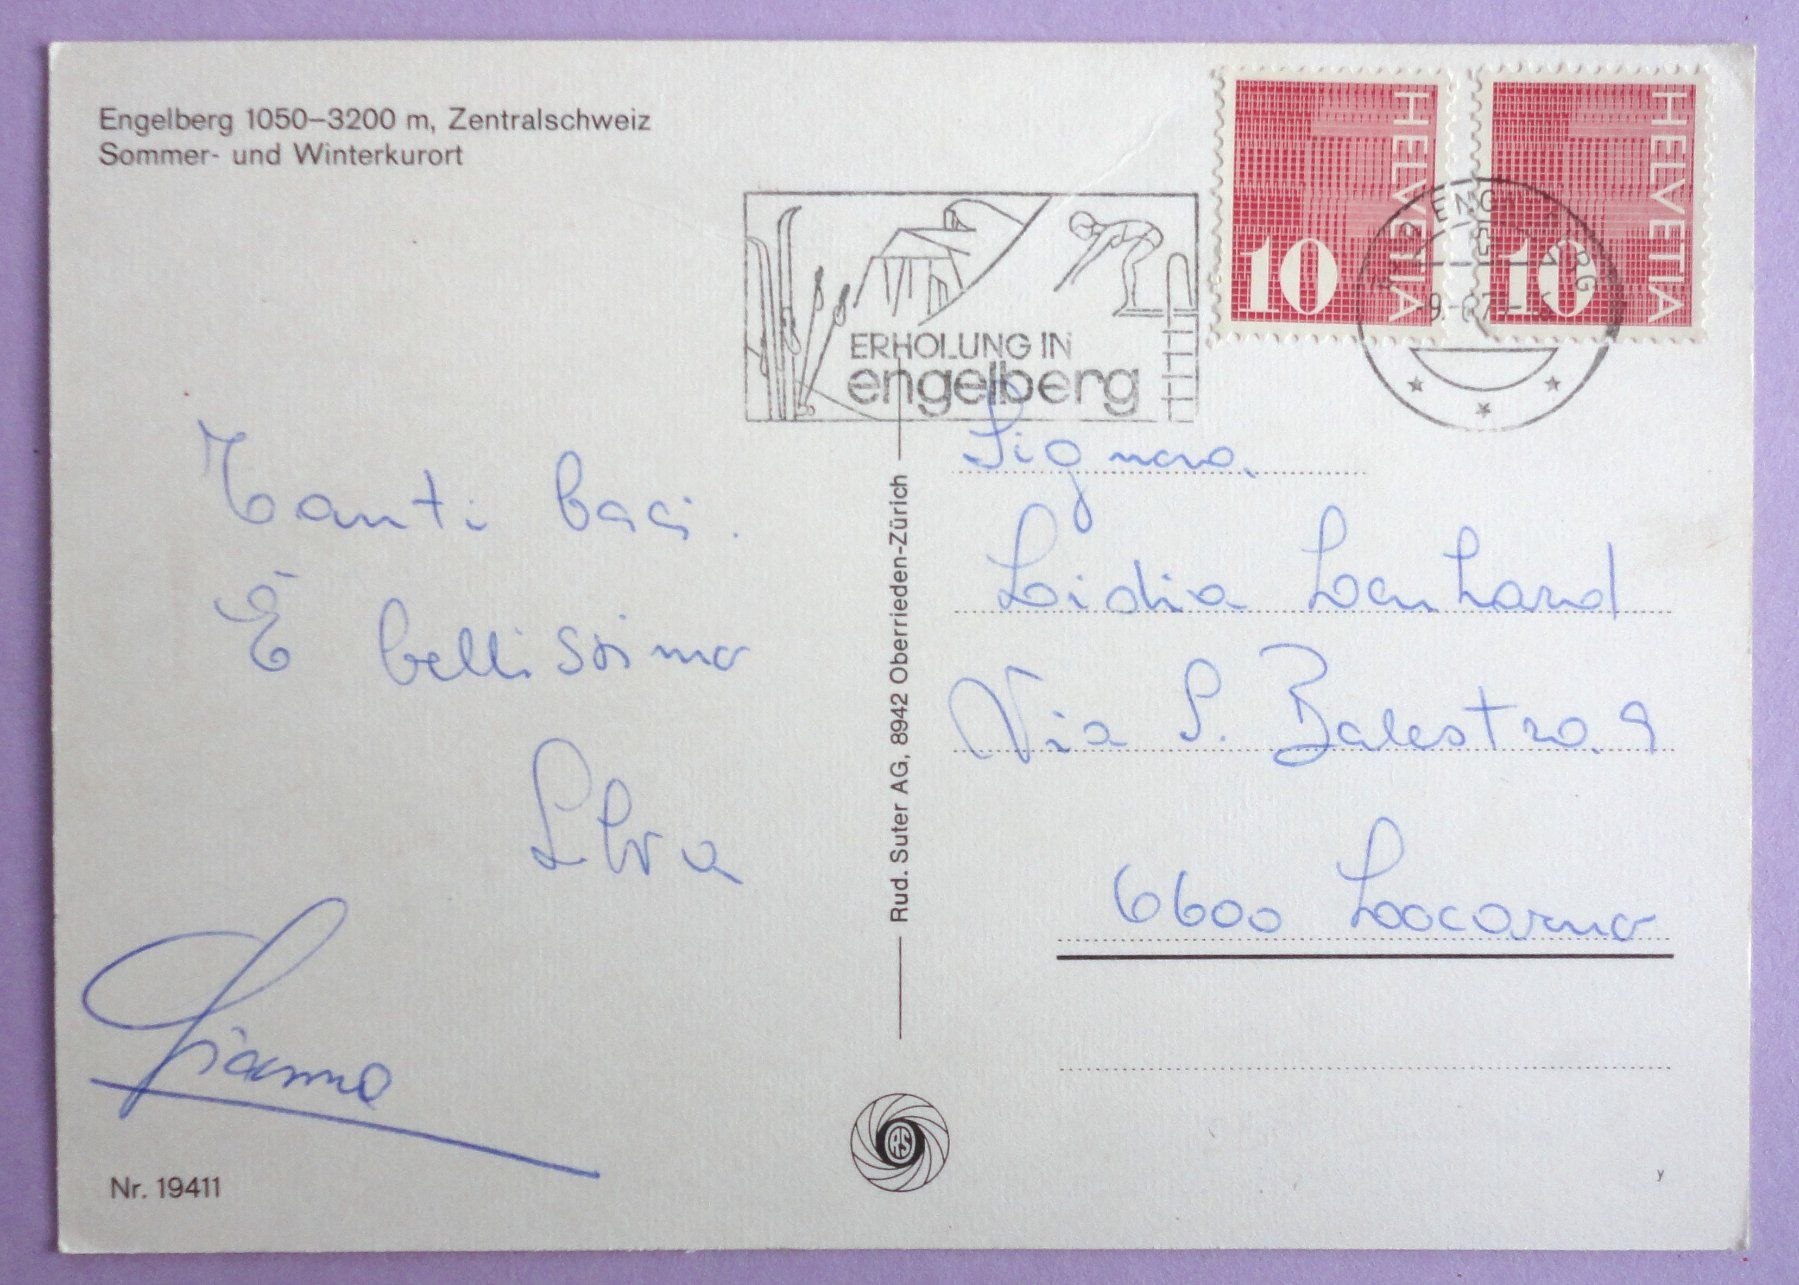 Engelberg 1050–3200 m, Zentralschweiz
Sommer- und Winterkurort
ERHOLUNG IN
engelberg
HELVETIA
10
HELVETIA
10
Tanti baci.
È bellissimo
Elva
Gianna
Nr. 19411
Rud. Suter AG, 8942 Oberrieden-Zürich
Signora
Lidia Lenhard
Via S. Balestra 9
6600 Locarno
RS
y